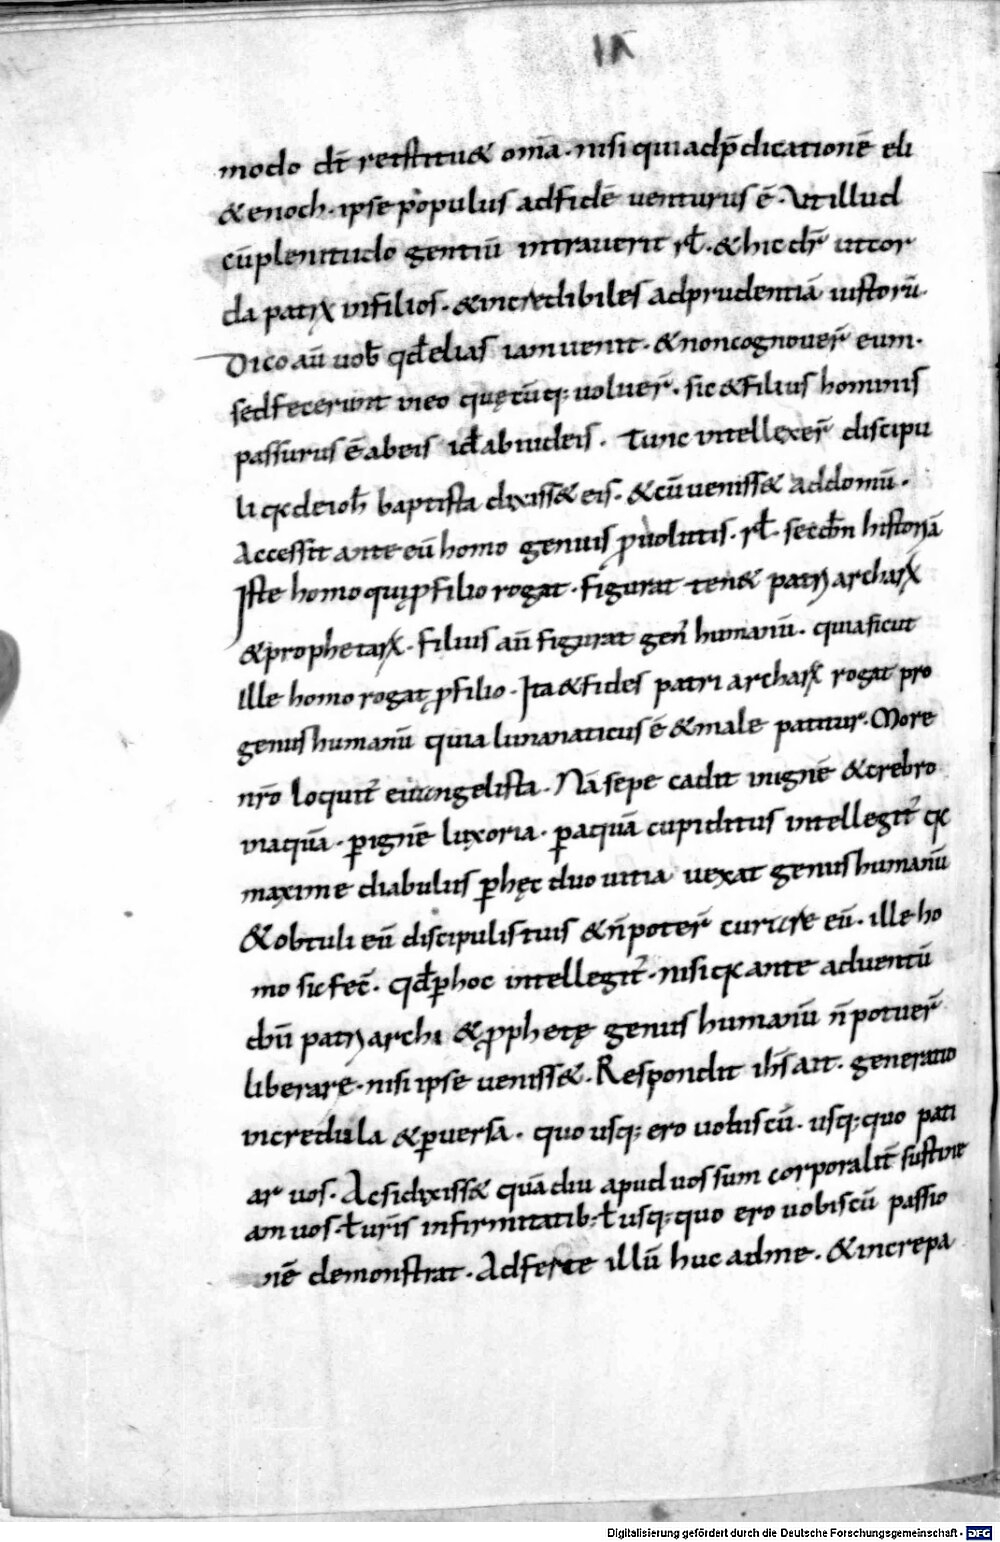 modo dr̄ restitu& om̄a · nisi quia adp̄dicationē eli
& enoch · ipse populus adfidē uenturus ē · Vt illud
cū plenitudo gentiū intrauerit · ł · & hic dr̄ ut cor
da patrꝝ in filios · & incredibiles adprudentiā iustorū ·
Dico aū uob̄ qđ elias iam uenit · & noncognouer̄ eum ·
sed fecerunt in eo quęcūq; uoluer̄ · sic & filius hominis
passurus ē abeis · id ab iudeis · Tunc intellexer̄ discipu
li qđ de ioh̄ baptista dixiss& eis · & cū ueniss& addomū ·
Accessit ante eū homo genuis ꝓuolutis · secdn̄ historiā
Iste homo qui ꝓ filio rogat · figurat ten& patriarcharꝝ
& prophetarꝝ · filius aū figurat gen' humanū · quia sicut
ille homo rogat ꝓ filio · Ita & fides patriarcharꝝ rogat pro
genus humanū quia lunaticus ē & male patitur · More
nr̄o loquit̄ euangelista · Nā sepe cadit inignē & crebro
inaquā · ꝑ ignē luxoria · ꝑ aquā cupiditus intellegit̄ qđ
maxime diabulus ꝑ hęc duo uitia uexat genus humanū
& obtuli eū discipulis tuis & n̄ poter̄ curare eū · ille ho
mo sic fec̄ · qđ ꝑ hoc intellegit̄ · nisi qđ ante aduentū
dn̄i patriarchi & ꝓphetę genus humanū n̄ potuer̄
liberare · nisi ipse ueniss& · Respondit ih̄s ait · generatio
incredula & ꝑuersa · quo usq; ero uobiscū · usq; quo pati
ar uos · Acsi dixiss& quādiu apud uos sum corporalit̄ sustine
am uos · ł ur̄is infirmitatib; ł usq; quo ero uobiscū passio
nē demonstrat · Adferte illū huc adme · & increpa
Digitalisierung gefördert durch die Deutsche Forschungsgemeinschaft - DFG